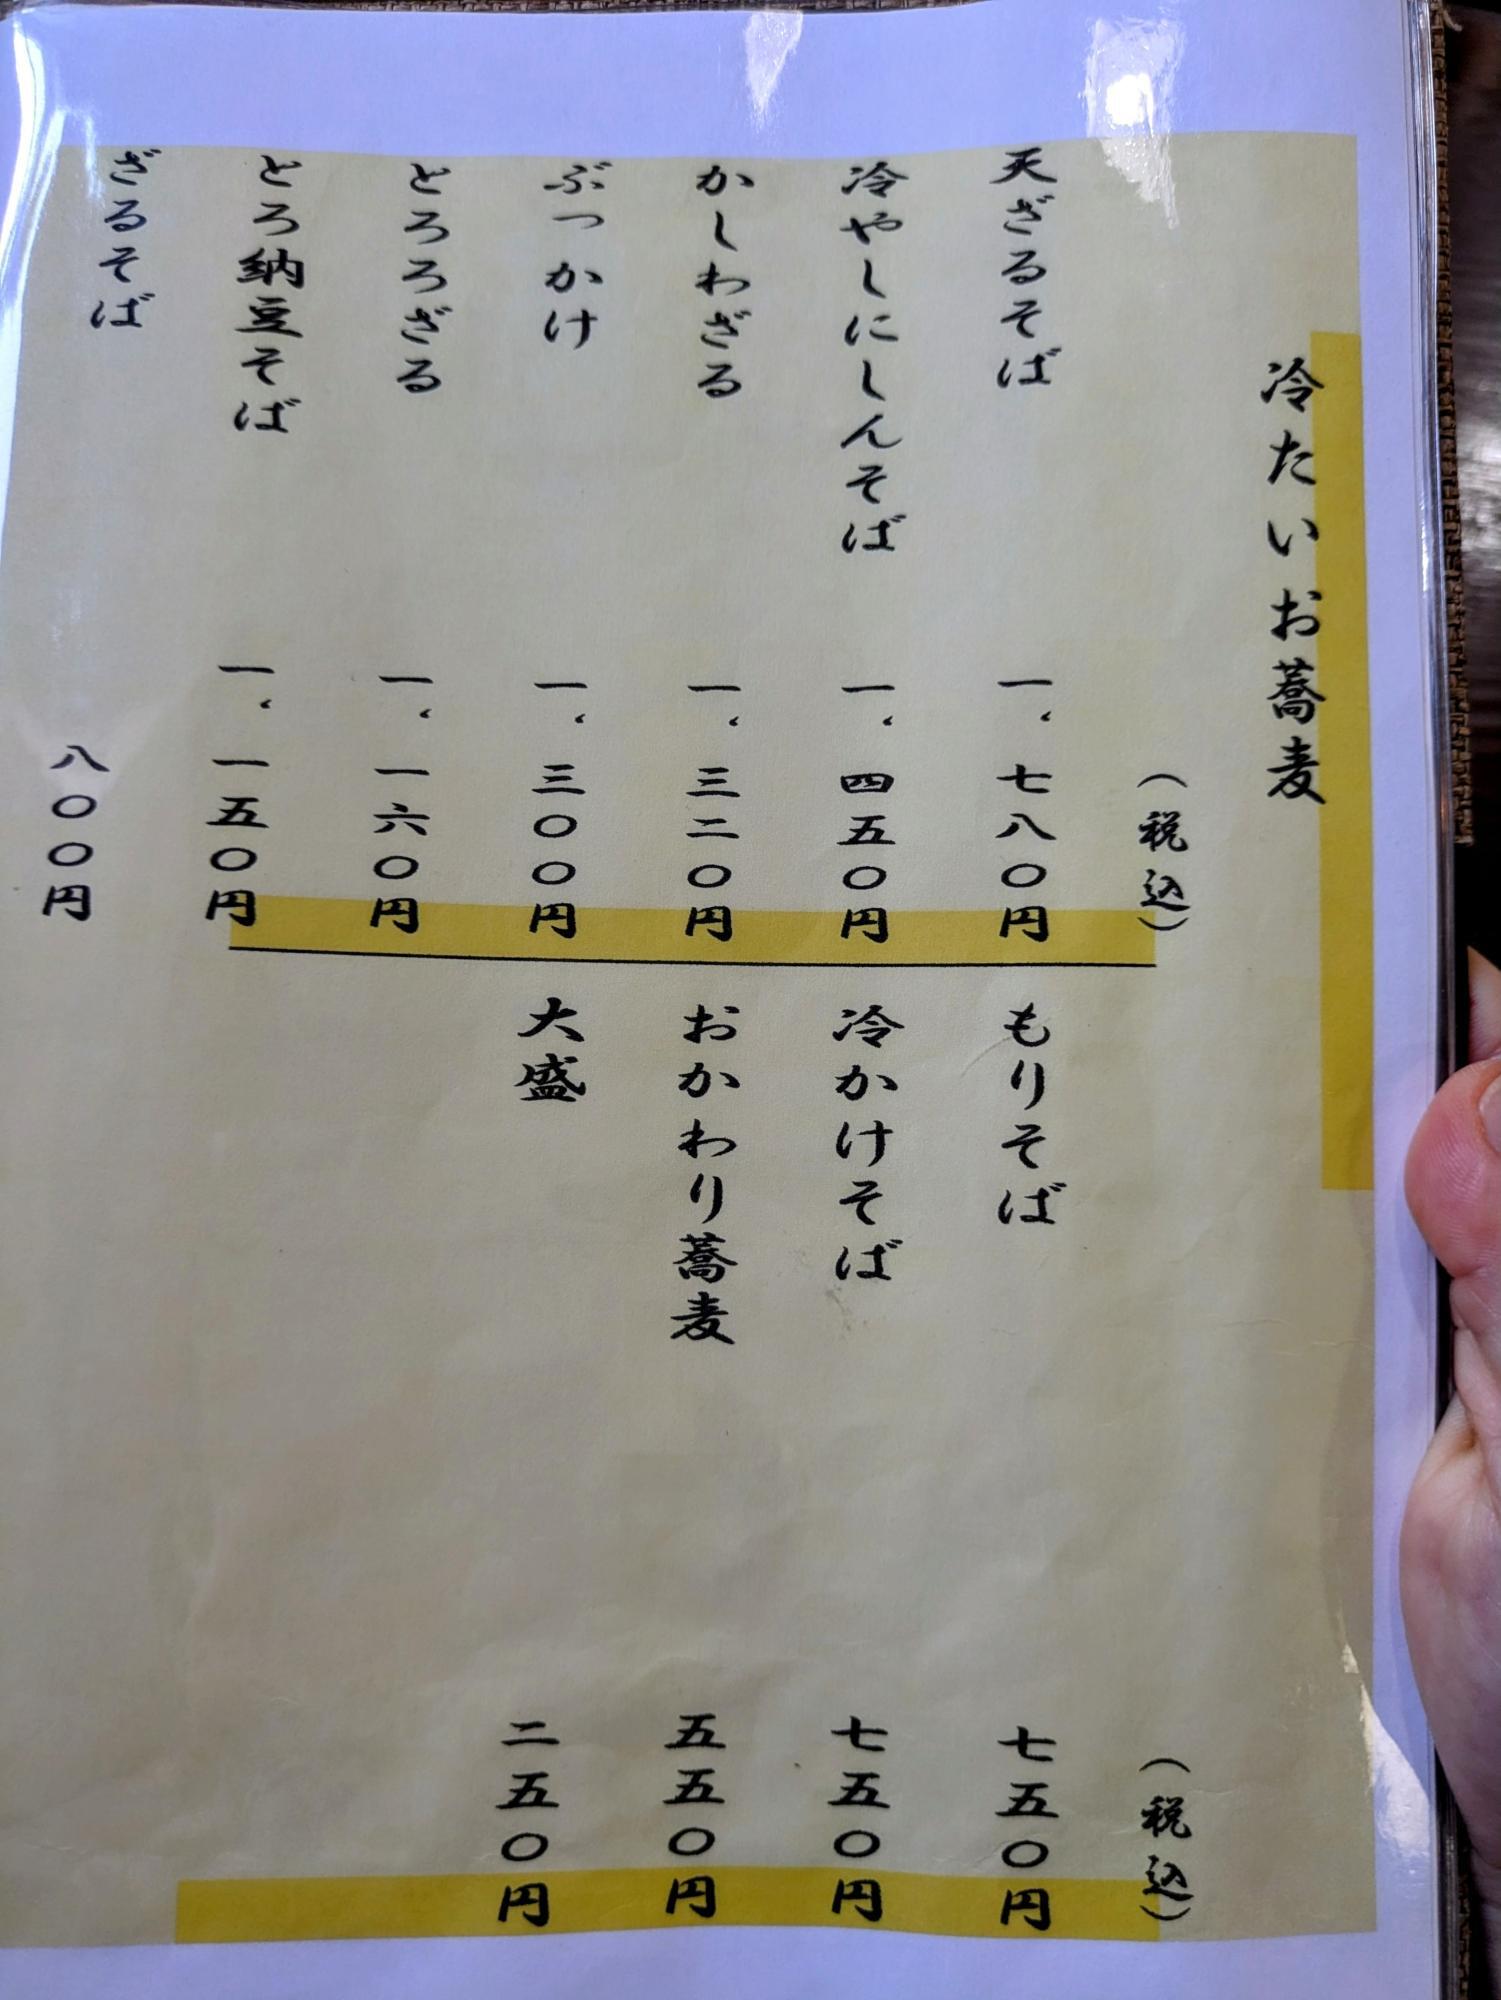 冷たいお蕎麦
（税込）
天ざるそば 一、七八〇円
冷やしにしんそば 一、四五〇円
かしわざる 一、三二〇円
ぶっかけ 一、三〇〇円
とろろざる 一、一六〇円
とろ納豆そば 一、一五〇円
ざるそば 八〇〇円
（税込）
もりそば 七五〇円
冷かけそば 七五〇円
おかわり蕎麦 五五〇円
大盛 二五〇円